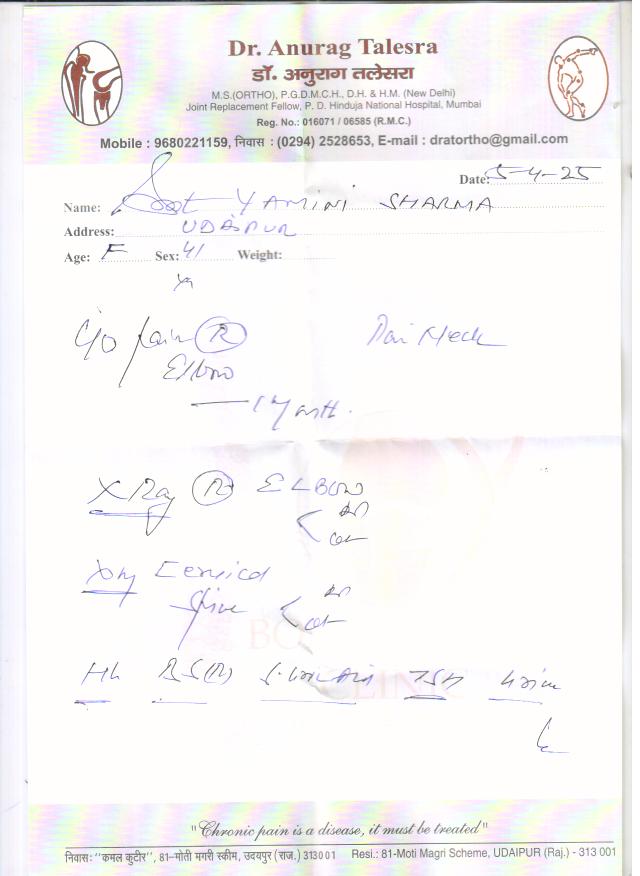 Dr. Anurag Talesra
डॉ. अनुराग तलेसरा
M.S.(ORTHO), P.G.D.M.C.H., D.H. & H.M. (New Delhi)
Joint Replacement Fellow, P. D. Hinduja National Hospital, Mumbai
Reg. No.: 016071 / 06585 (R.M.C.)
Mobile : 9680221159, निवास : (0294) 2528653, E-mail : dratortho@gmail.com
Date: 5-4-25
Name: YAMINI SHARMA
Address: UDAIPUR
Age: F Sex: 41 Weight:
C/O pain (R) Pain Neck
Elbow
1 Month.
X Ray (R) ELBOW
AP
Lat
Xray Cervical
AP
Spine
Lat
Hb BS(R) TSH Urine
BO
CLINIC
"Chronic pain is a disease, it must be treated"
निवास: "कमल कुटीर", 81-मोती मगरी स्कीम, उदयपुर (राज.) 313001 Resi.: 81-Moti Magri Scheme, UDAIPUR (Raj.) - 313 001